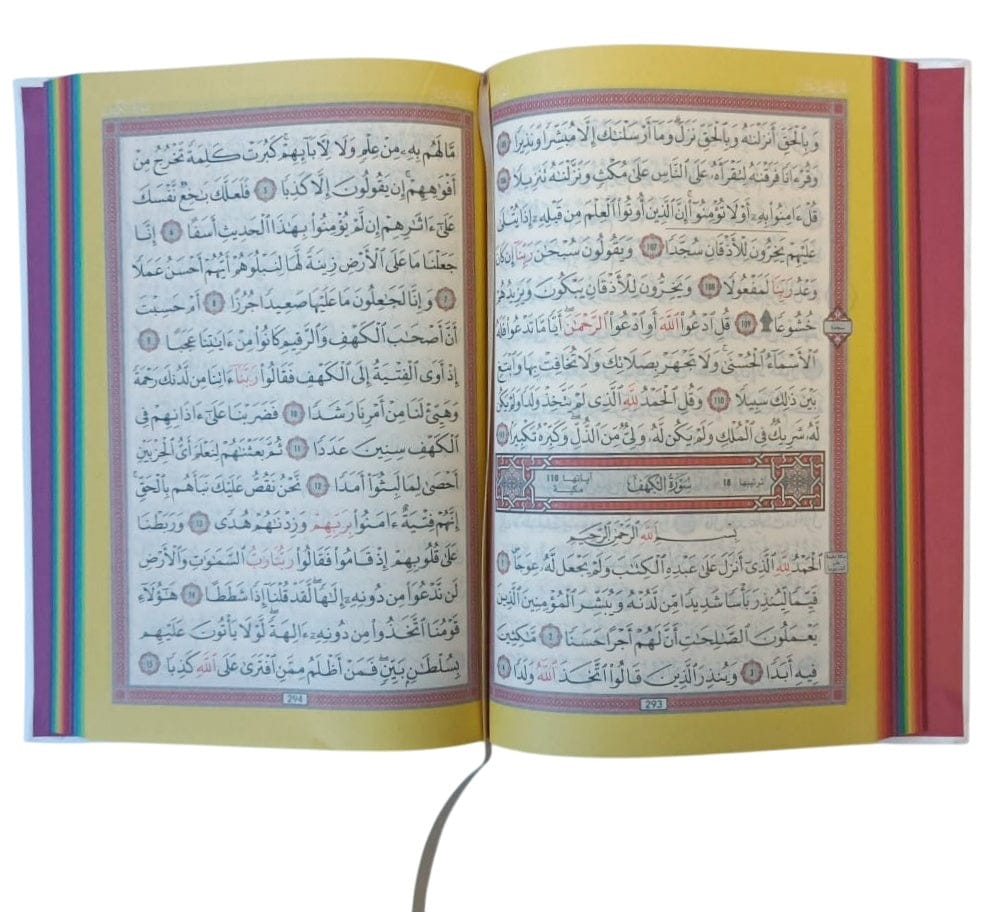 وَبِالْحَقِّ أَنزَلْنَٰهُ وَبِالْحَقِّ نَزَلَ وَمَا أَرْسَلْنَٰكَ إِلَّا مُبَشِّرًا وَنَذِيرًا 105
وَقُرْءَانًا فَرَقْنَٰهُ لِتَقْرَأَهُۥ عَلَى النَّاسِ عَلَىٰ مُكْثٍ وَنَزَّلْنَٰهُ تَنزِيلًا 106
قُلْ ءَامِنُوا بِهِۦٓ أَوْ لَا تُؤْمِنُوٓا إِنَّ الَّذِينَ أُوتُوا الْعِلْمَ مِن قَبْلِهِۦٓ إِذَا يُتْلَىٰ
عَلَيْهِمْ يَخِرُّونَ لِلْأَذْقَانِ سُجَّدًا 107 وَيَقُولُونَ سُبْحَٰنَ رَبِّنَآ إِن كَانَ
وَعْدُ رَبِّنَا لَمَفْعُولًا 108 وَيَخِرُّونَ لِلْأَذْقَانِ يَبْكُونَ وَيَزِيدُهُمْ
خُشُوعًا ۩ 109 قُلِ ادْعُوا اللَّهَ أَوِ ادْعُوا الرَّحْمَٰنَ أَيًّا مَّا تَدْعُوا فَلَهُ
سجدة
الْأَسْمَآءُ الْحُسْنَىٰ وَلَا تَجْهَرْ بِصَلَاتِكَ وَلَا تُخَافِتْ بِهَا وَابْتَغِ
بَيْنَ ذَٰلِكَ سَبِيلًا 110 وَقُلِ الْحَمْدُ لِلَّهِ الَّذِى لَمْ يَتَّخِذْ وَلَدًا وَلَمْ يَكُن
لَّهُۥ شَرِيكٌ فِى الْمُلْكِ وَلَمْ يَكُن لَّهُۥ وَلِىٌّ مِّنَ الذُّلِّ وَكَبِّرْهُ تَكْبِيرًا 111
ترتيبها 18 سُورَةُ الْكَهْفِ آياتها 110 مكية
بِسْمِ اللَّهِ الرَّحْمَٰنِ الرَّحِيمِ
الْحَمْدُ لِلَّهِ الَّذِىٓ أَنزَلَ عَلَىٰ عَبْدِهِ الْكِتَٰبَ وَلَمْ يَجْعَل لَّهُۥ عِوَجًا 1
قَيِّمًا لِّيُنذِرَ بَأْسًا شَدِيدًا مِّن لَّدُنْهُ وَيُبَشِّرَ الْمُؤْمِنِينَ الَّذِينَ
يَعْمَلُونَ الصَّٰلِحَٰتِ أَنَّ لَهُمْ أَجْرًا حَسَنًا 2 مَّٰكِثِينَ
فِيهِ أَبَدًا 3 وَيُنذِرَ الَّذِينَ قَالُوا اتَّخَذَ اللَّهُ وَلَدًا 4
293
مَّا لَهُم بِهِۦ مِنْ عِلْمٍ وَلَا لِءَابَآئِهِمْ كَبُرَتْ كَلِمَةً تَخْرُجُ مِنْ
أَفْوَٰهِهِمْ إِن يَقُولُونَ إِلَّا كَذِبًا 5 فَلَعَلَّكَ بَٰخِعٌ نَّفْسَكَ
عَلَىٰٓ ءَاثَٰرِهِمْ إِن لَّمْ يُؤْمِنُوا بِهَٰذَا الْحَدِيثِ أَسَفًا 6 إِنَّا
جَعَلْنَا مَا عَلَى الْأَرْضِ زِينَةً لَّهَا لِنَبْلُوَهُمْ أَيُّهُمْ أَحْسَنُ عَمَلًا
7 وَإِنَّا لَجَٰعِلُونَ مَا عَلَيْهَا صَعِيدًا جُرُزًا 8 أَمْ حَسِبْتَ
أَنَّ أَصْحَٰبَ الْكَهْفِ وَالرَّقِيمِ كَانُوا مِنْ ءَايَٰتِنَا عَجَبًا 9
إِذْ أَوَى الْفِتْيَةُ إِلَى الْكَهْفِ فَقَالُوا رَبَّنَآ ءَاتِنَا مِن لَّدُنكَ رَحْمَةً
وَهَيِّئْ لَنَا مِنْ أَمْرِنَا رَشَدًا 10 فَضَرَبْنَا عَلَىٰٓ ءَاذَانِهِمْ فِى
الْكَهْفِ سِنِينَ عَدَدًا 11 ثُمَّ بَعَثْنَٰهُمْ لِنَعْلَمَ أَىُّ الْحِزْبَيْنِ
أَحْصَىٰ لِمَا لَبِثُوٓا أَمَدًا 12 نَّحْنُ نَقُصُّ عَلَيْكَ نَبَأَهُم بِالْحَقِّ
إِنَّهُمْ فِتْيَةٌ ءَامَنُوا بِرَبِّهِمْ وَزِدْنَٰهُمْ هُدًى 13 وَرَبَطْنَا
عَلَىٰ قُلُوبِهِمْ إِذْ قَامُوا فَقَالُوا رَبُّنَا رَبُّ السَّمَٰوَٰتِ وَالْأَرْضِ
لَن نَّدْعُوَا مِن دُونِهِۦٓ إِلَٰهًا لَّقَدْ قُلْنَآ إِذًا شَطَطًا 14 هَٰٓؤُلَآءِ
قَوْمُنَا اتَّخَذُوا مِن دُونِهِۦٓ ءَالِهَةً لَّوْلَا يَأْتُونَ عَلَيْهِم
بِسُلْطَٰنٍۭ بَيِّنٍ فَمَنْ أَظْلَمُ مِمَّنِ افْتَرَىٰ عَلَى اللَّهِ كَذِبًا 15
294